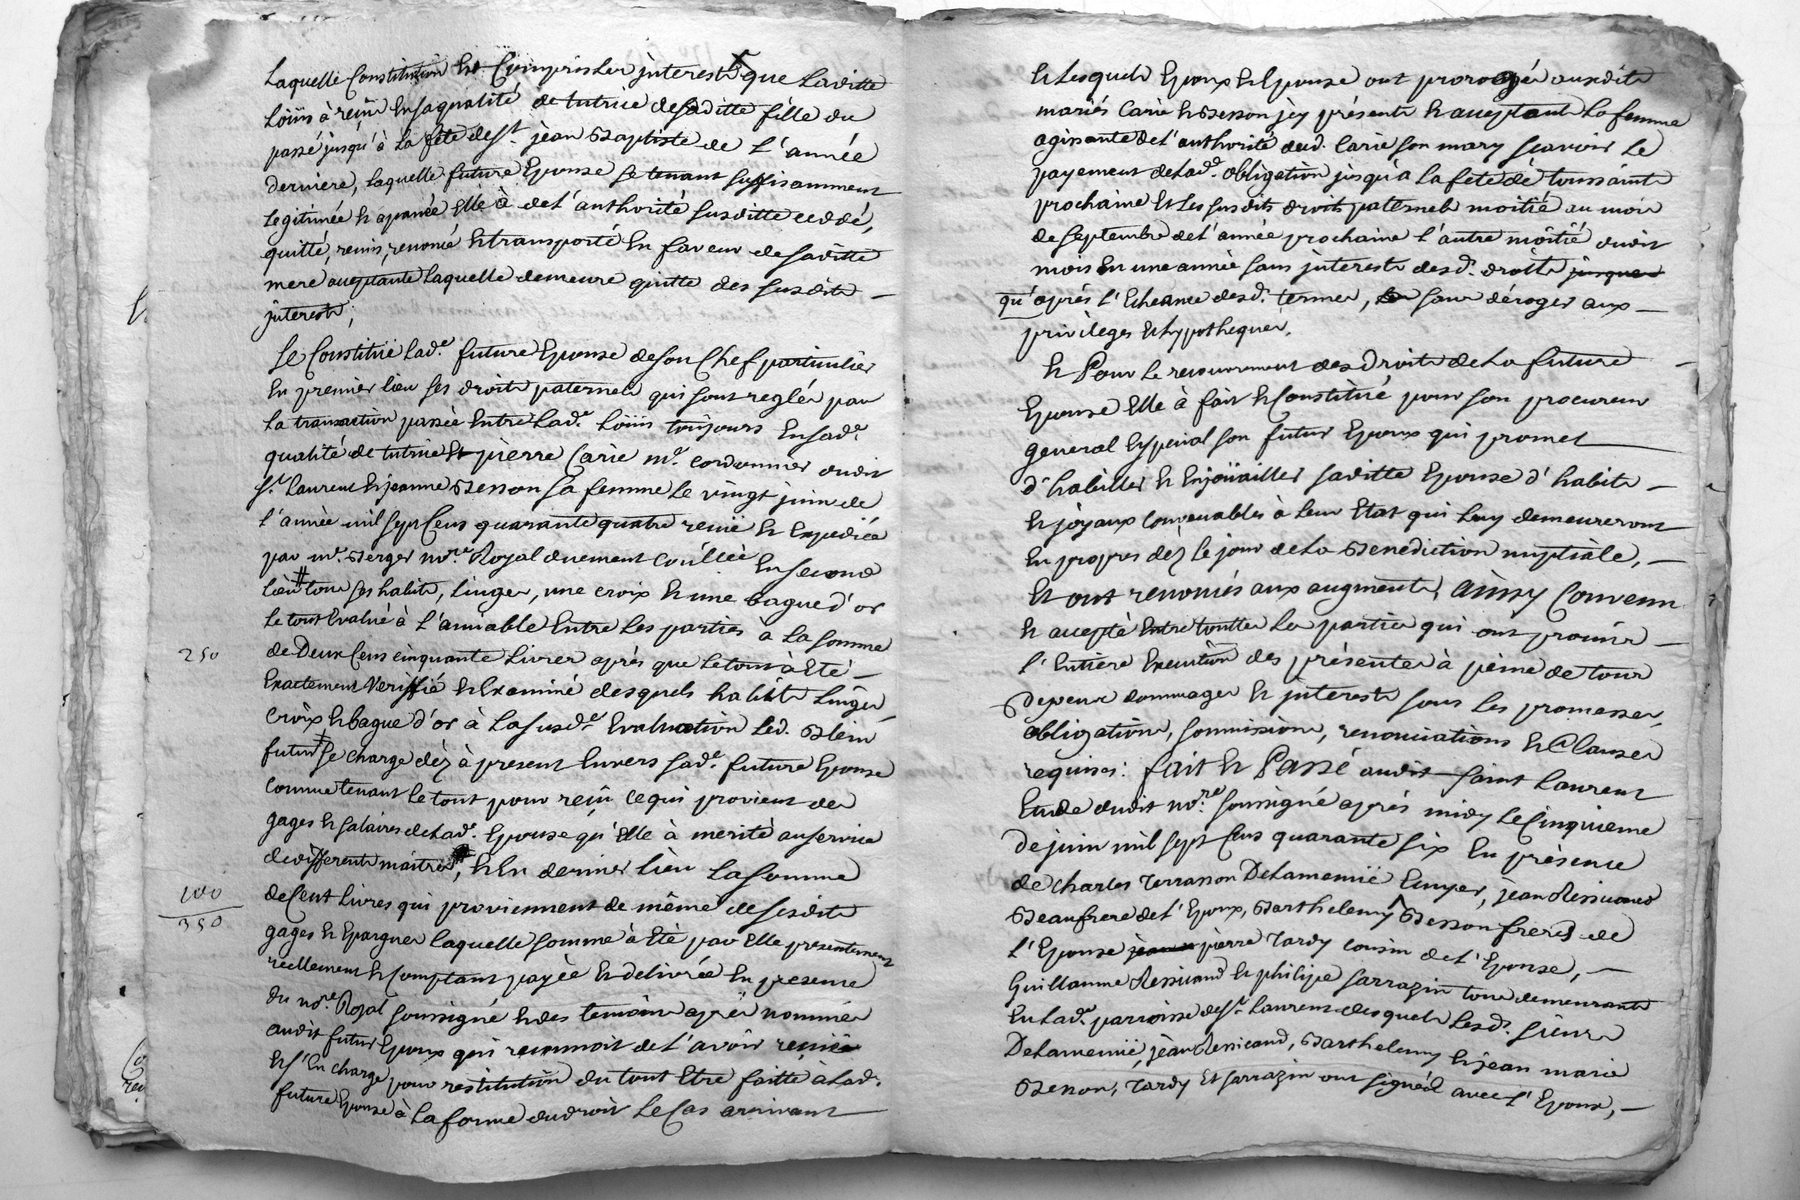 Laquelle Constitution Et Compris Les jnterests que Laditte
Loüis à reçû En sa qualité de tutrice de saditte fille du
passé jusqu'à la fête de St. jean Baptiste de L'année
derniere, Laquelle future Epouse se tenant suffisamment
legitimée et apanée Elle à de L'authorité susditte ceddé,
quitté, remis, renoncé Et transporté En faveur de saditte
mere acceptante Laquelle demeure quitte des susdits
jnterests;
Se Constitüe lade. future Epouse de son Chef particulier
En premier lieu ses droits paternels qui sont reglés par
La transaction passée Entre Lade. Loüis toûjours En sade.
qualité de tutrice Et pierre Carie me. cordonnier audit
St. Laurent Et jeanne Besson sa femme Le vingt juin de
L'année mil sept Cens quarante quatre remise Et Expediée
par me. Berger nore. Royal duement Coüllée En second
lieu # tous ses habits, Linges, une croix Et une bague d'or
Le tout Evalué à L'amiable Entre Les parties à La somme
250
de Deux Cens cinquante Livres après que Le tout à Eté
Exactement Veriffié Et Examiné desquels habits Linges
croix Et bague d'or à La susde. Evaluation Led. Blein
futur # se charge dèz à present Envers sade. future Epouse
comme tenant Le tout pour reçû ce qui provient des
gages Et salaires de Lade. Epouse qu'Elle à merité au service
de differents maitres, Et En dernier Lieu La somme
100
de Cent Livres qui proviennent de même de sesdits
350
gages Et Epargnes Laquelle somme à Eté par Elle presentement
reellement Et Comptant payée Et delivrée En presence
du nore. Royal soussigné Et des temoins après nommés
audit futur Epoux qui reconnoit de L'avoir
Et s'En charge pour restitution du tout Etre faitte à Lad.
future Epouse à La forme du droit Le Cas arrivant
Et Lesquels Epoux Et Epouse ont prorogé auxdits
mariés Carie Et Besson jcy présents Et acceptant La femme
agissante de L'authorité dud. Carie son mary scavoir Le
payement de Lade. obligation jusqu'à La fete de toussaints
prochaine Et Les susdits droits paternels moitié au mois
de septembre de L'année prochaine L'autre môitié audit
mois En une année sans jnterests desd. droits jusques
qu'après L'Echeance desd. termes, sans déroger aux
privileges Et hypotheques.
Et Pour Le recouvrement des Droits de La future
Epouse Elle à fait Et Constitüé pour son procureur
general Et special son futur Epoux qui promet
d'habiller Et Enjoüailler saditte Epouse d'habits
Et joyaux Convenables à Leur Etat qui Luy demeureront
En propres dèz Le jour de La Benediction nuptiale,
Et ont renoncés aux augments, Ainsy Convenu
Et accepté Entre touttes Les parties qui ont promis
L'Entiere Execution des présentes à peine de tous
Depens dommages Et jnterests sous Les promesses,
obligations, soumissions, renonciations Et Clauses
requises: fait Et Passé audit Saint Laurent
Etude dudit nore. soussigné après midy Le Cinquieme
de juin mil sept Cens quarante six En présence
de Charles Terrasson Delamennië Ecuyer, jean Ressicaud
Beaufrere de L'Epoux, Barthelemy Besson freres de
L'Epouse pierre Tardy cousin de L'Epouse,
Guillaume Ressicaud Et philipe sarrazin tous demeurants
En Lade. parroisse de St. Laurent desquels Lesd. sieurs
Delamennië, jean Ressicaud, Barthelemy Et jean marie
Besson, Tardy Et sarrazin ont signés avec L'Epoux,